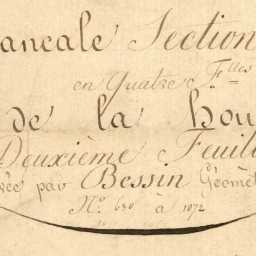 ancale Section
en Quatre Flles
de la hou
Deuxième Feuill
vée par Bessin Géomèt
No. 630 à 1072